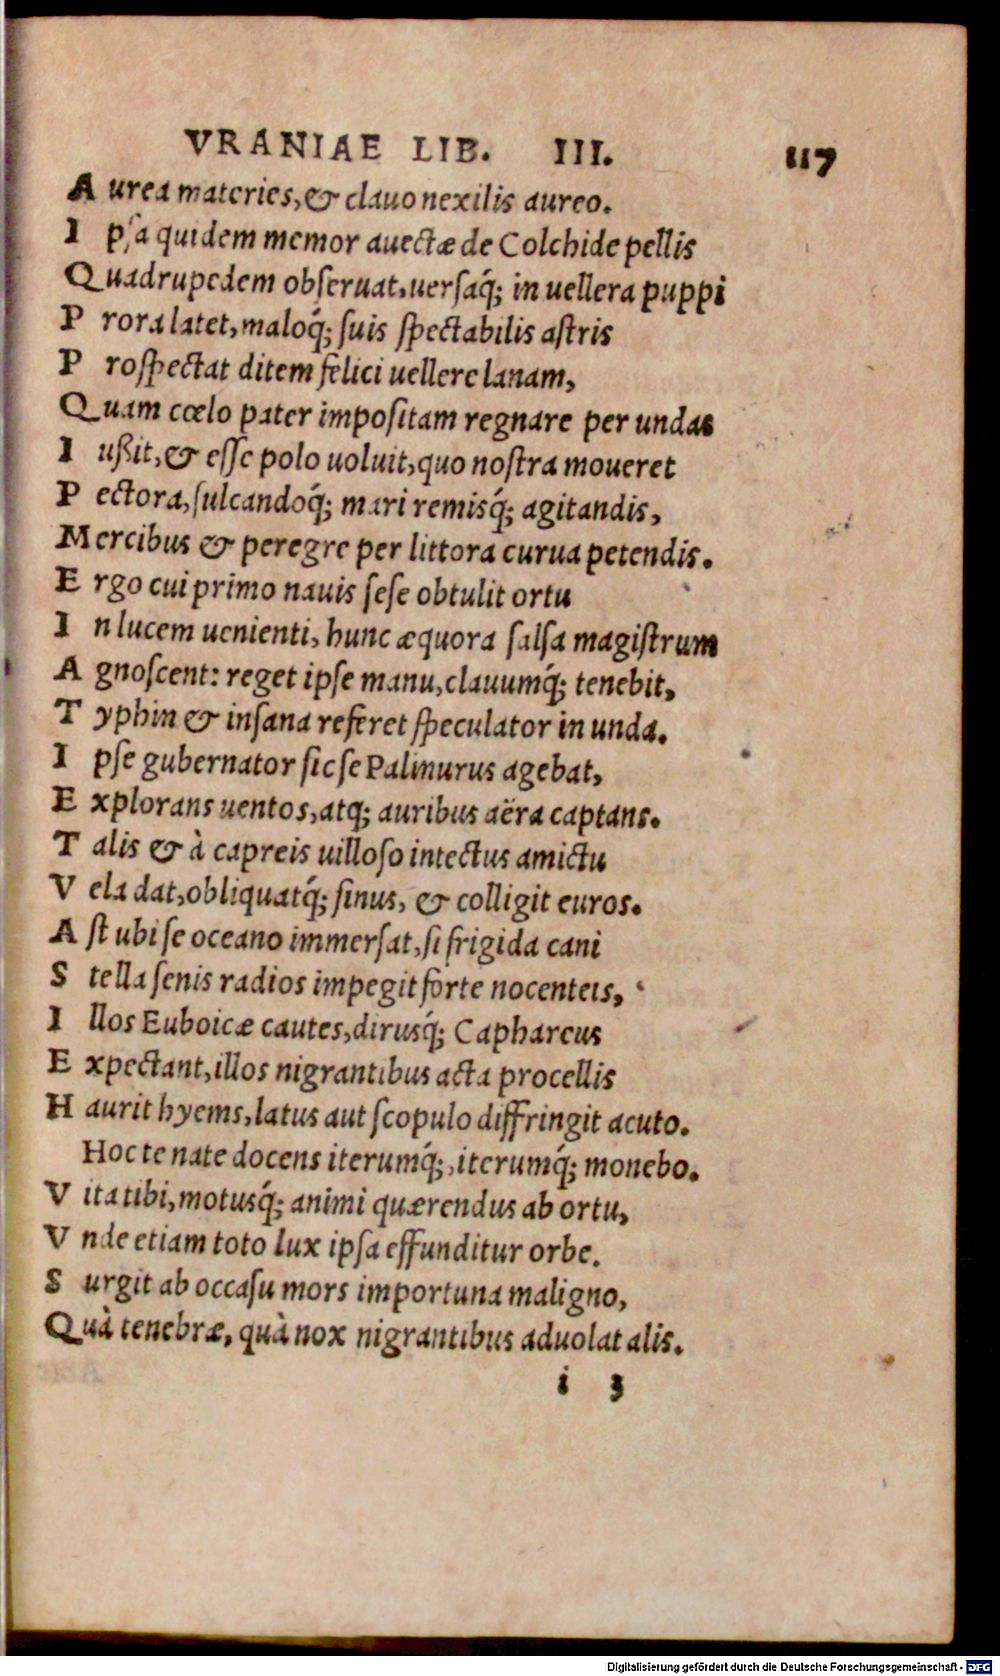 VRANIAE LIB. III. 117
Aurea materies, & clauo nexilis aureo.
Ipsa quidem memor auectæ de Colchide pellis
Quadrupedem obseruat, uersaq́; in uellera puppi
Prora latet, maloq́; suis spectabilis astris
Prospectat ditem felici uellere lanam,
Quam cœlo pater impositam regnare per undas
Iußit, & esse polo uoluit, quo nostra moueret
Pectora, sulcandoq́; mari remisq́; agitandis,
Mercibus & peregre per littora curua petendis.
Ergo cui primo nauis sese obtulit ortu
In lucem uenienti, hunc æquora salsa magistrum
Agnoscent: reget ipse manu, clauumq́; tenebit,
Typhin & insana referet speculator in unda.
Ipse gubernator sic se Palinurus agebat,
Explorans uentos, atq; auribus aëra captans.
Talis & à capreis uilloso intectus amictu
Vela dat, obliquatq́; sinus, & colligit euros.
Ast ubi se oceano immersat, si frigida cani
Stella senis radios impegit forte nocenteis,
Illos Euboicæ cautes, dirusq́; Caphareus
Expectant, illos nigrantibus acta procellis
Haurit hyems, latus aut scopulo diffringit acuto.
Hoc te nate docens iterumq́;, iterumq́; monebo.
Vita tibi, motusq́; animi quærendus ab ortu,
Vnde etiam toto lux ipsa effunditur orbe.
Surgit ab occasu mors importuna maligno,
Quà tenebræ, quà nox nigrantibus aduolat alis.
i 3
Digitalisierung gefördert durch die Deutsche Forschungsgemeinschaft - DFG